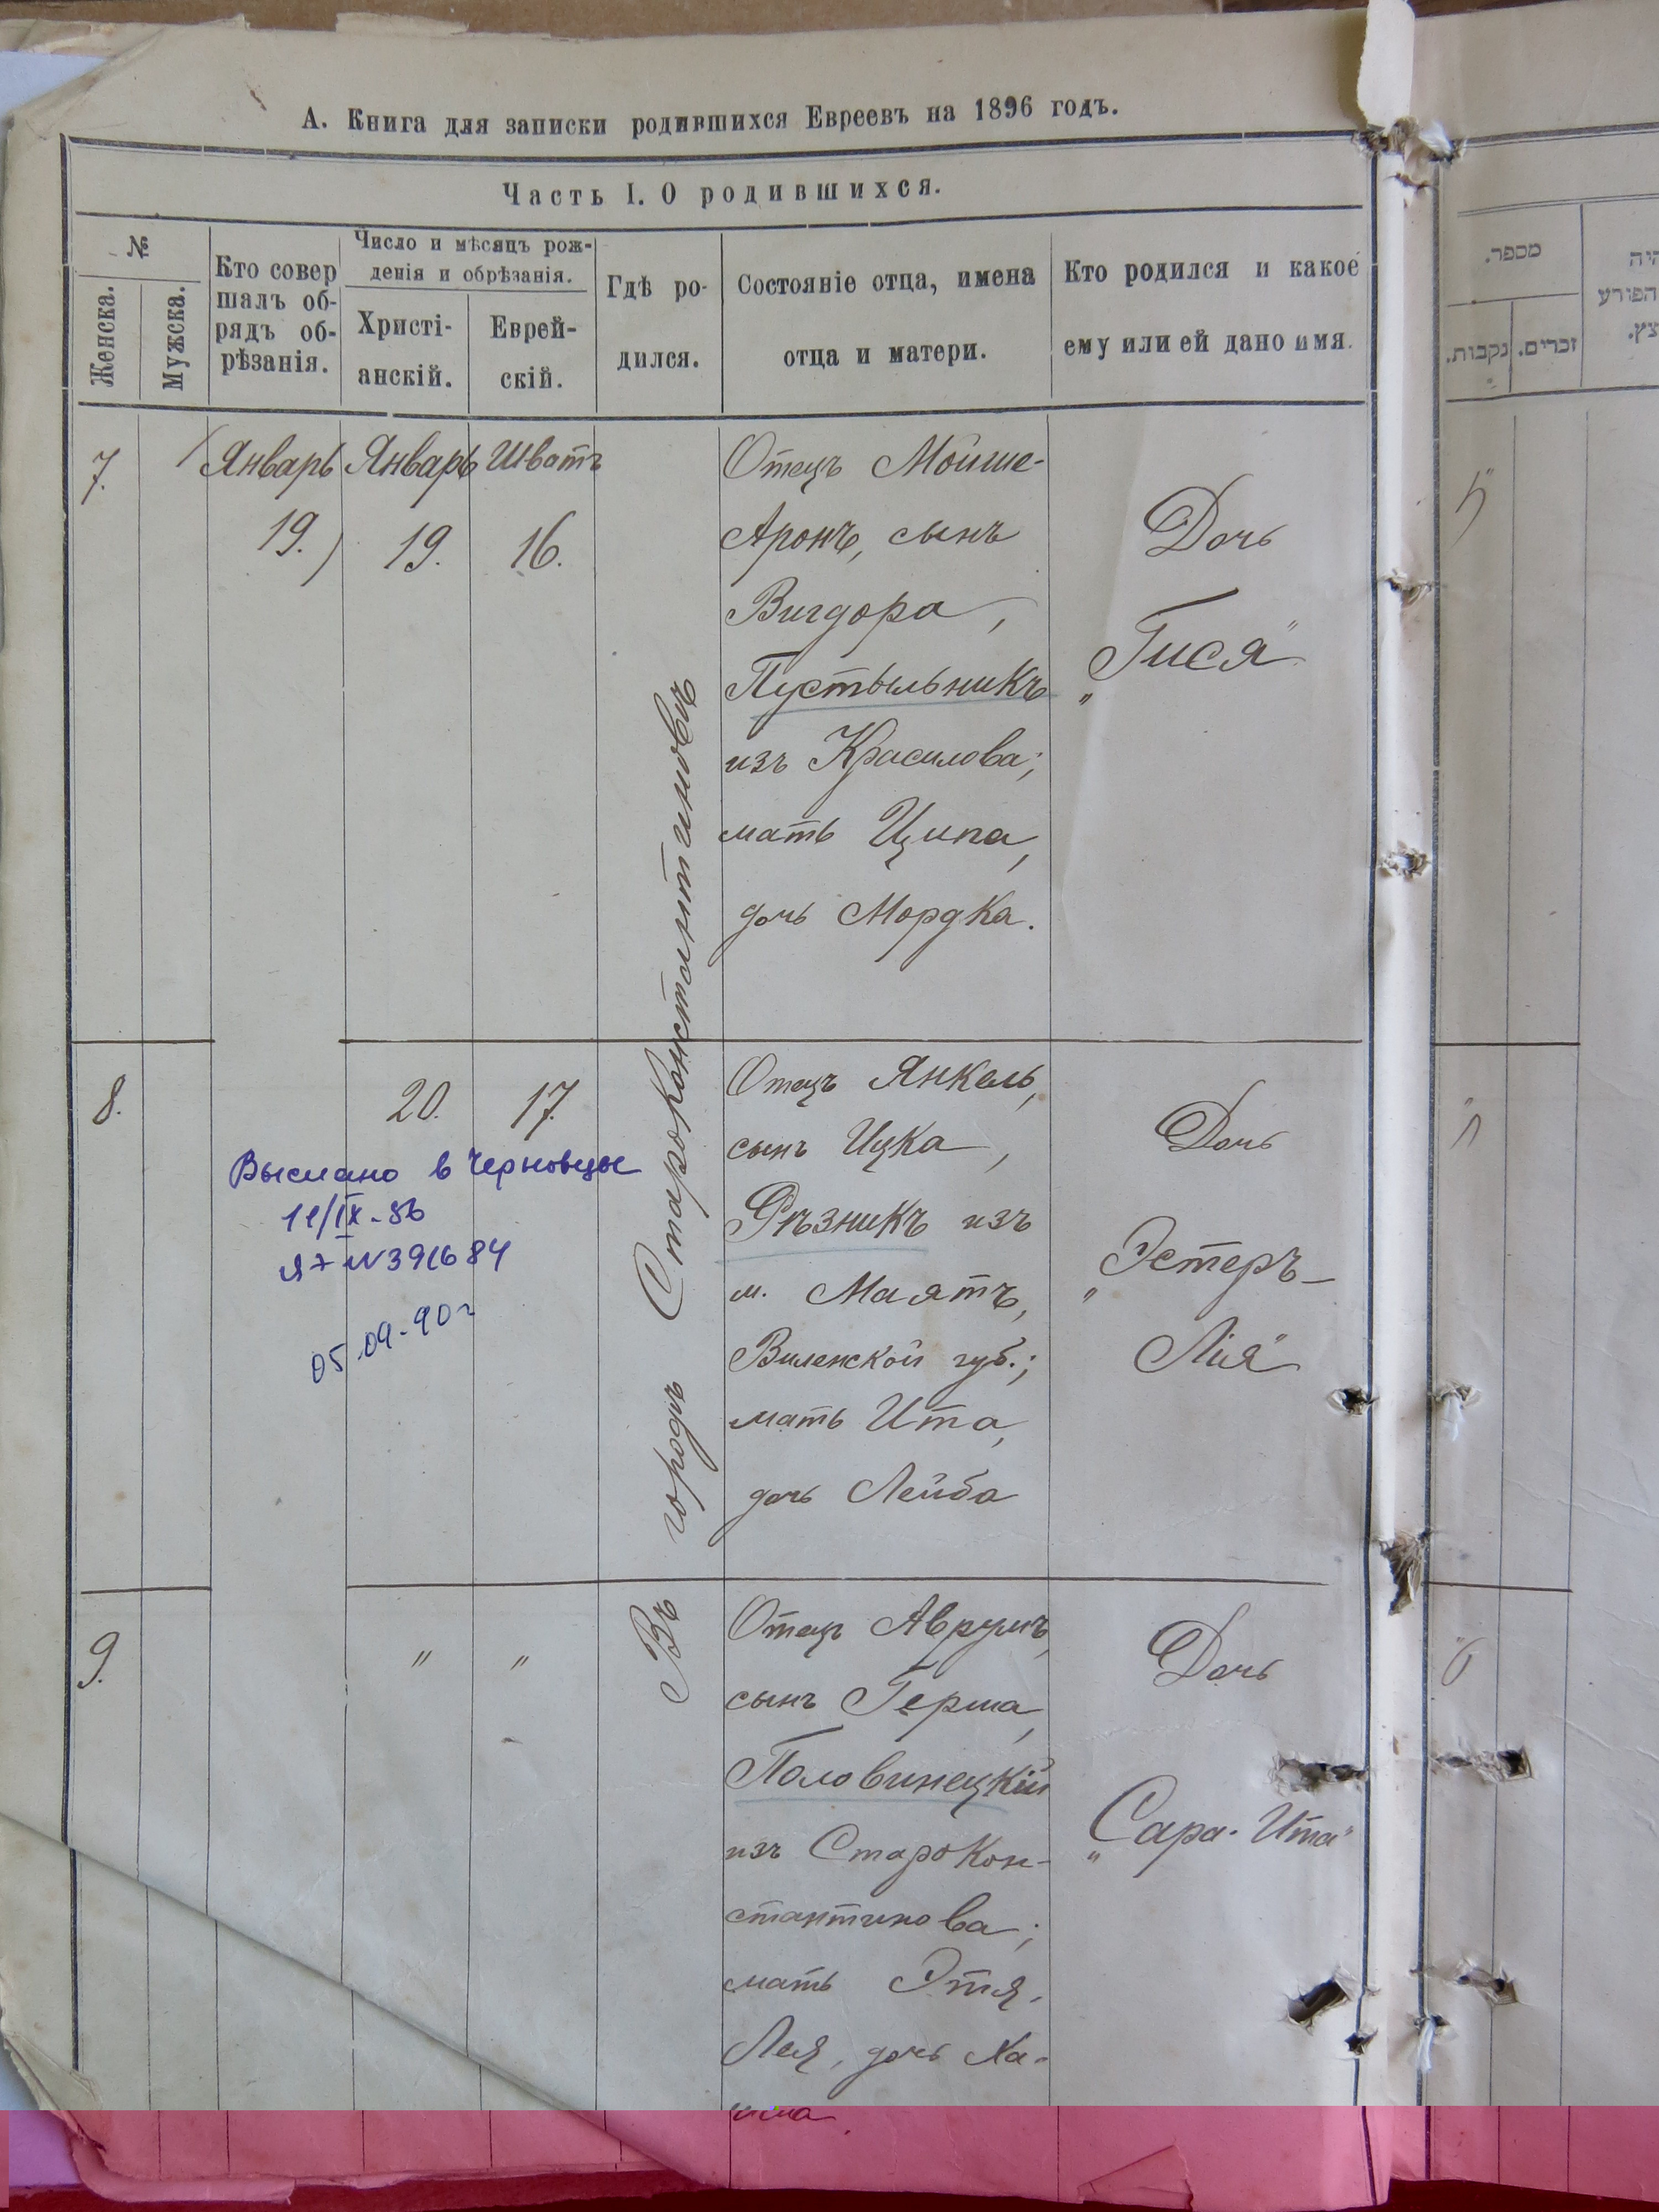 А. Книга для записки родившихся Евреевъ на 1896 годъ.
Часть I. О родившихся.
№
Женска.
Мужска.
Кто совер
шалъ об-
рядъ об-
рѣзанія.
Число и мѣсяцъ рож-
денія и обрѣзанія.
Христі-
анскій.
Еврей-
скій.
Гдѣ ро-
дился.
Состояніе отца, имена
отца и матери.
Кто родился и какое
ему или ей дано имя.
מספר.
נקבות.
זכרים.
היה
הפורע
7.
(Январь
19.)
Январь
19.
Шватъ
16.
Въ городѣ Староконстантиновѣ
Отецъ Мойше-
Аронъ, сынъ
Вигдора,
Пустыльникъ
изъ Красилова;
мать Ципа,
дочь Мордка.
Дочь
„Гися"
8.
20.
17.
Выслано в Черновцы
11/IX-86
№391684
05.09-90г
Отецъ Янкель,
сынъ Ицка,
Рѣзникъ изъ
м. Маятъ,
Виленской губ.;
мать Ита,
дочь Лейба
Дочь
„Эстеръ-
Лія"
9.
"
"
Отецъ Аврумъ,
сынъ Герша,
Половинецкій
изъ Старокон-
стантинова;
мать Этя,
Лея, дочь Ха-
има.
Дочь
„Сара-Ита"